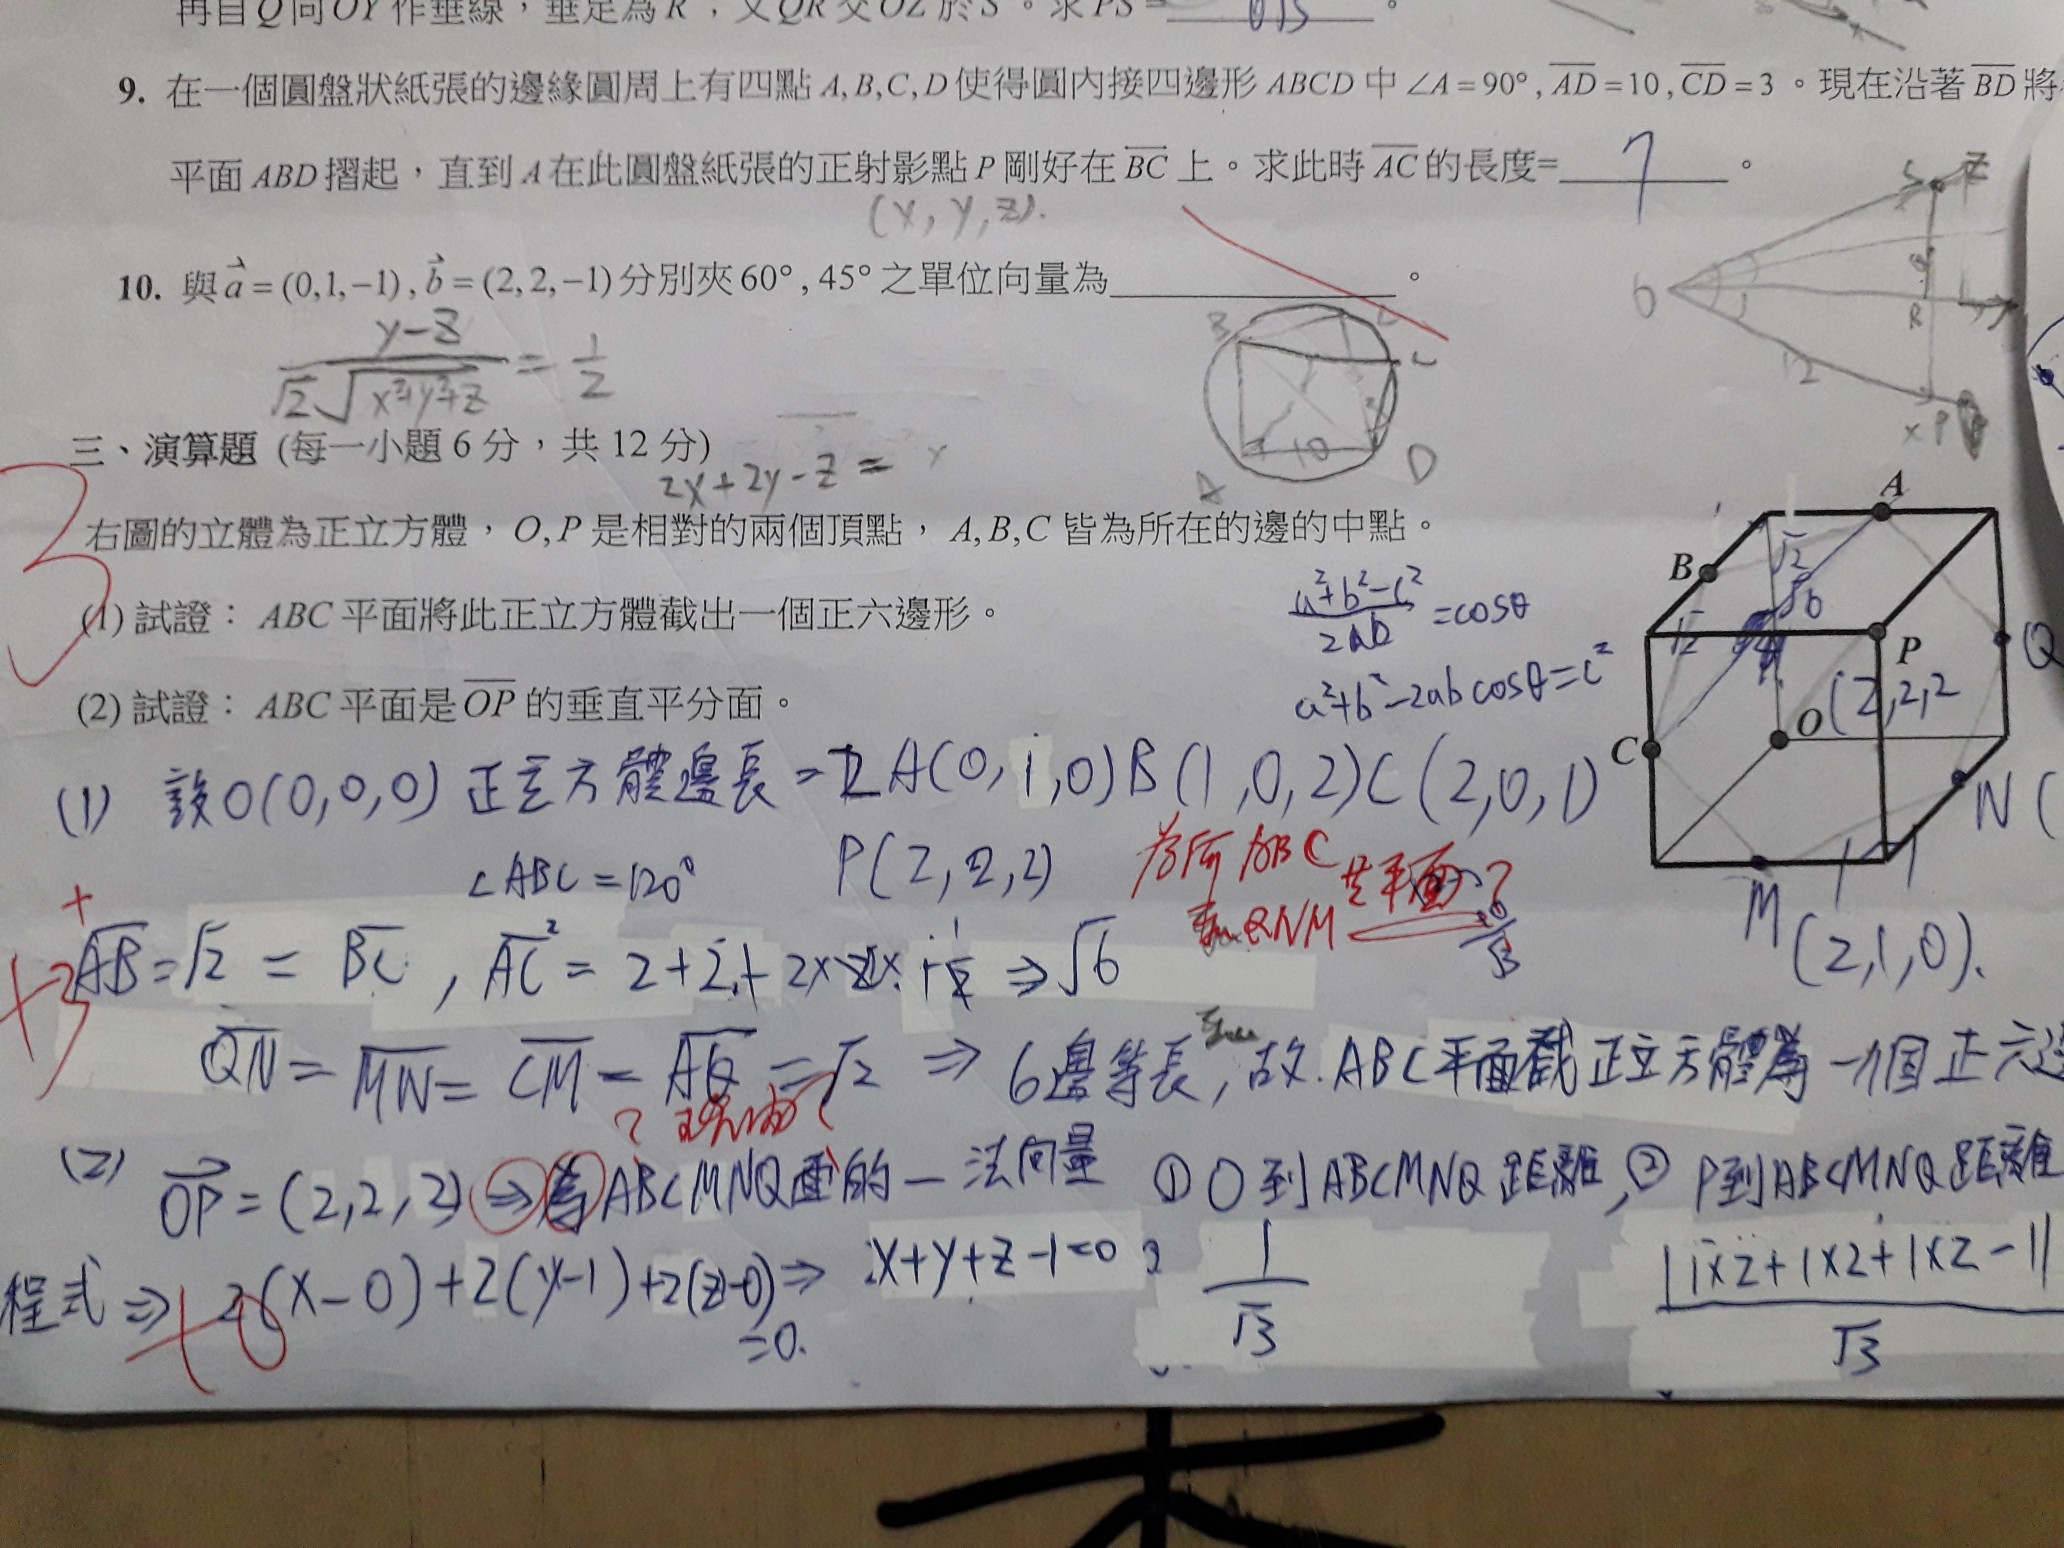 再自 Q 向 OY 作垂線,垂足為 R,又 QR 交 OZ 於 S。求 PS =
9. 在一個圓盤狀紙張的邊緣圓周上有四點 A, B, C, D 使得圓內接四邊形 ABCD 中 ∠A = 90°, AD = 10, CD = 3。現在沿著 BD 將
平面 ABD 摺起,直到 A 在此圓盤紙張的正射影點 P 剛好在 BC 上。求此時 AC 的長度= 7 。
(x, y, z).
10. 與 a = (0,1,−1), b = (2,2,−1) 分別夾 60°, 45° 之單位向量為 。
y−z / √2 √x²+y²+z = 1/2
B
A 10 D
S Z
O R
12
x P
三、演算題 (每一小題 6 分,共 12 分)
2x+2y−z =
3
右圖的立體為正立方體,O, P 是相對的兩個頂點, A, B, C 皆為所在的邊的中點。
(1) 試證: ABC 平面將此正立方體截出一個正六邊形。
(2) 試證: ABC 平面是 OP 的垂直平分面。
a²+b²−c² / 2ab = cosθ
a²+b²−2ab cosθ = c²
A
B √2 √6
√2 P Q
C O (2,2,2
N (
M (2,1,0).
(1) 設O(0,0,0) 正立方體邊長=2 A(0,1,0) B(1,0,2) C(2,0,1)
∠ABC=120° P(2,2,2)
為何ABC
和QNM 共平面?
+3
AB=√2 = BC, AC² = 2+2+2×2× 1/2 ⇒ √6
QN = MN = CM = AQ = √2 ⇒ 6邊等長, 故.ABC平面截正立方體為一個正六邊
?
(2) OP = (2,2,2) ⇒ 為ABCMNQ面的一法向量 ① O到ABCMNQ距離, ② P到ABCMNQ距離
程式 ⇒ 2(x−0)+2(y−1)+2(z−0)=0. ⇒ x+y+z−1=0 1/√3 |1×2+1×2+1×2−1| / √3
+0